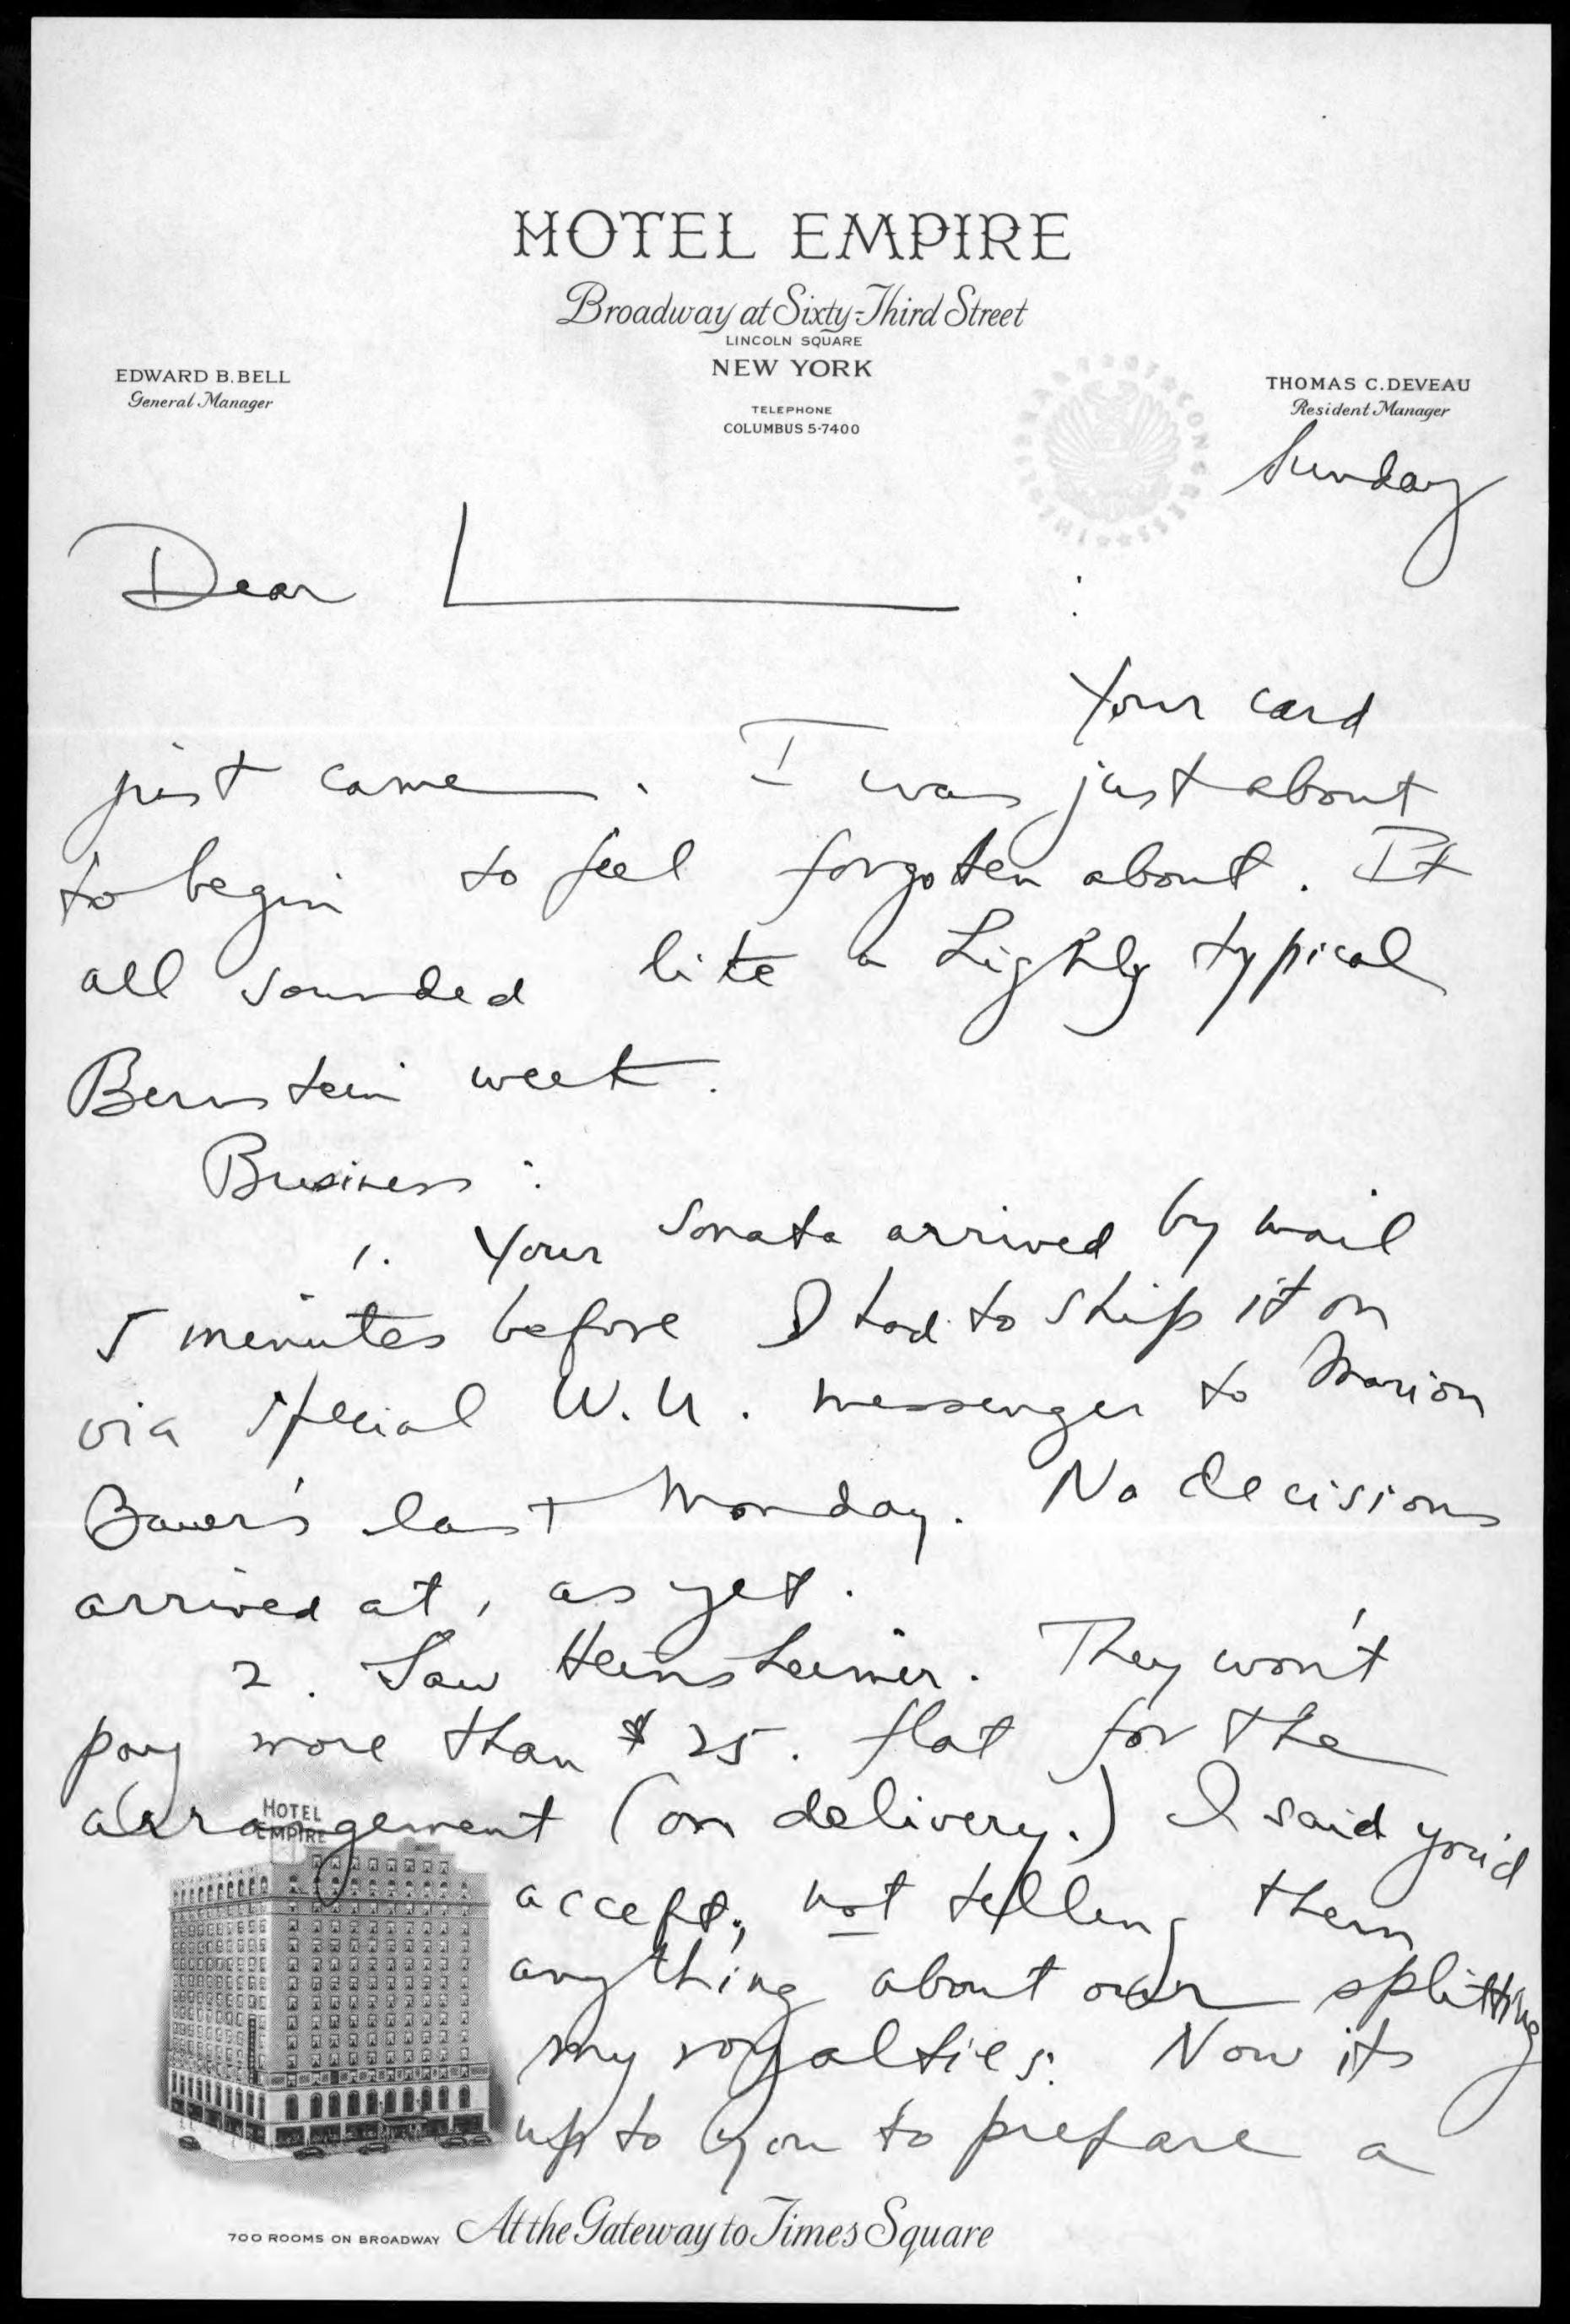 HOTEL EMPIRE
Broadway at Sixty-Third Street
LINCOLN SQUARE
NEW YORK
TELEPHONE
COLUMBUS 5-7400
EDWARD B. BELL
General Manager
THOMAS C. DEVEAU
Resident Manager
Sunday
Dear L :
Your card
just came. I was just about
to begin to feel forgotten about. It
all sounded like a highly typical
Bernstein week.
Business:
1. Your Sonata arrived by mail
5 minutes before I had to ship it on
via special W.U. messenger to Marion
Bauer's last Monday. No decisions
arrived at, as yet.
2. Saw Heinsheimer. They won't
pay more than $25. flat for the
arrangement (on delivery.) I said you'd
accept, not telling them
anything about our splitting
my royalties. Now its
up to you to prepare a
HOTEL
EMPIRE
700 ROOMS ON BROADWAY At the Gateway to Times Square